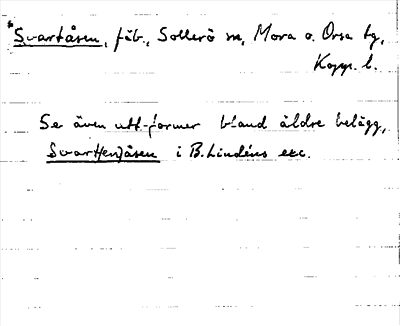 *Svartåsen, fäb., Sollerö sn, Mora o. Orsa tg,
Kopp. l.
Se även utt-former bland äldre belägg,
Svart(en)åsen i B. Lindéns exc.